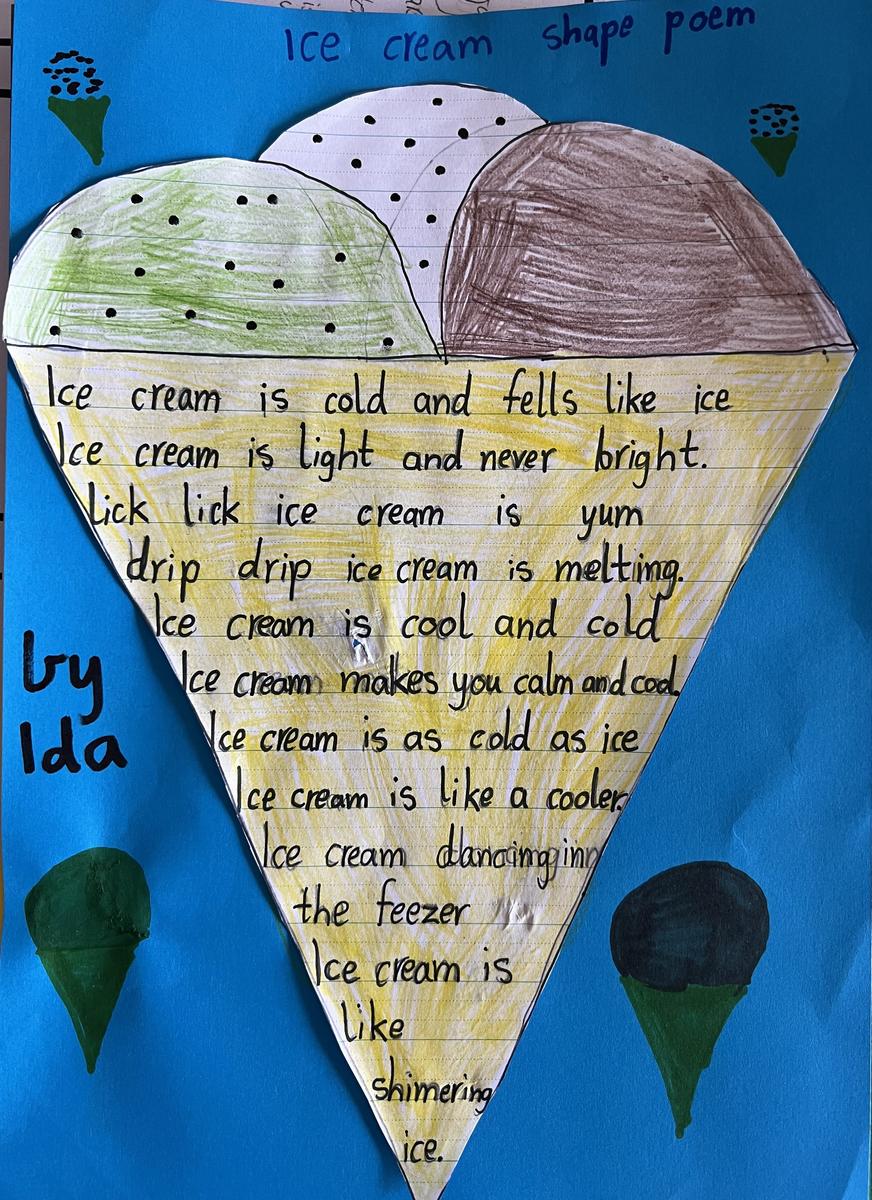 Ice cream shape poem
Ice cream is cold and fells like ice
Ice cream is light and never bright.
Lick lick ice cream is yum
drip drip ice cream is melting.
Ice cream is cool and cold
Ice cream makes you calm and cool.
Ice cream is as cold as ice
Ice cream is like a cooler.
Ice cream dancing in
the feezer
Ice cream is
like
shimering
ice.
by
Ida